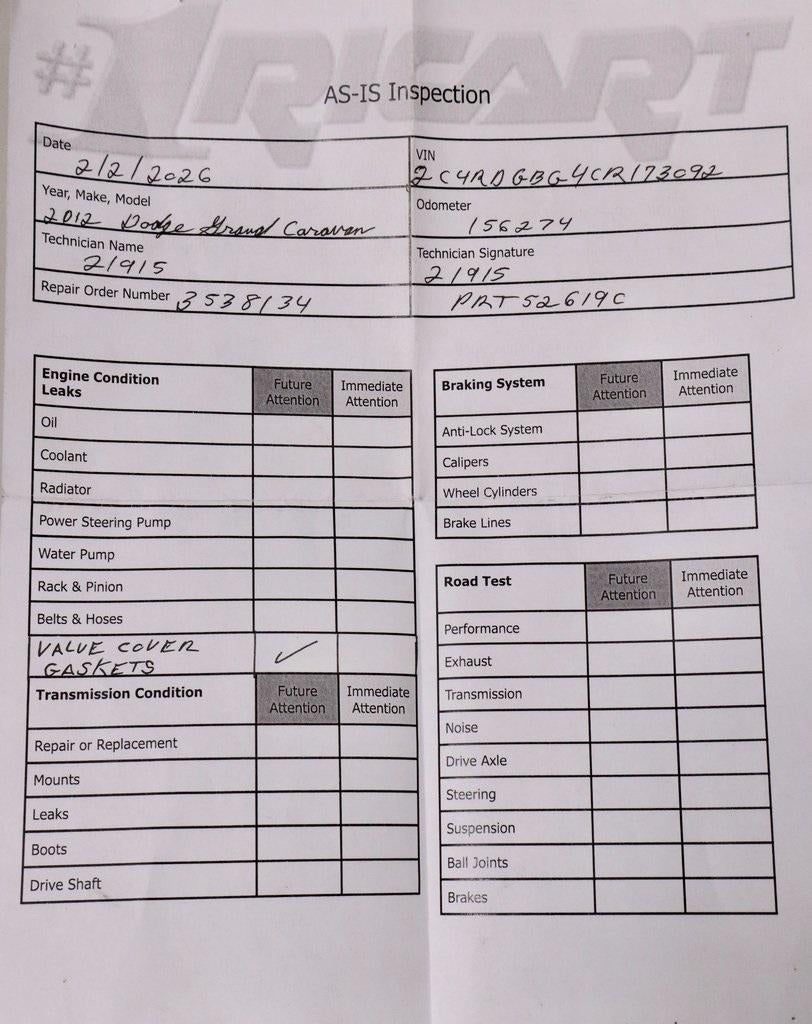 #1 RICART
AS-IS Inspection
Date
2/2/2026
VIN
2C4RDGBG4CR173092
Year, Make, Model
2012 Dodge Grand Caravan
Odometer
156274
Technician Name
21915
Technician Signature
21915
Repair Order Number 3538134
PRT 52619C
Engine Condition
Leaks
Future
Attention
Immediate
Attention
Oil
Coolant
Radiator
Power Steering Pump
Water Pump
Rack & Pinion
Belts & Hoses
VALUE COVER
GASKETS ✓
Transmission Condition
Future
Attention
Immediate
Attention
Repair or Replacement
Mounts
Leaks
Boots
Drive Shaft
Braking System
Future
Attention
Immediate
Attention
Anti-Lock System
Calipers
Wheel Cylinders
Brake Lines
Road Test
Future
Attention
Immediate
Attention
Performance
Exhaust
Transmission
Noise
Drive Axle
Steering
Suspension
Ball Joints
Brakes